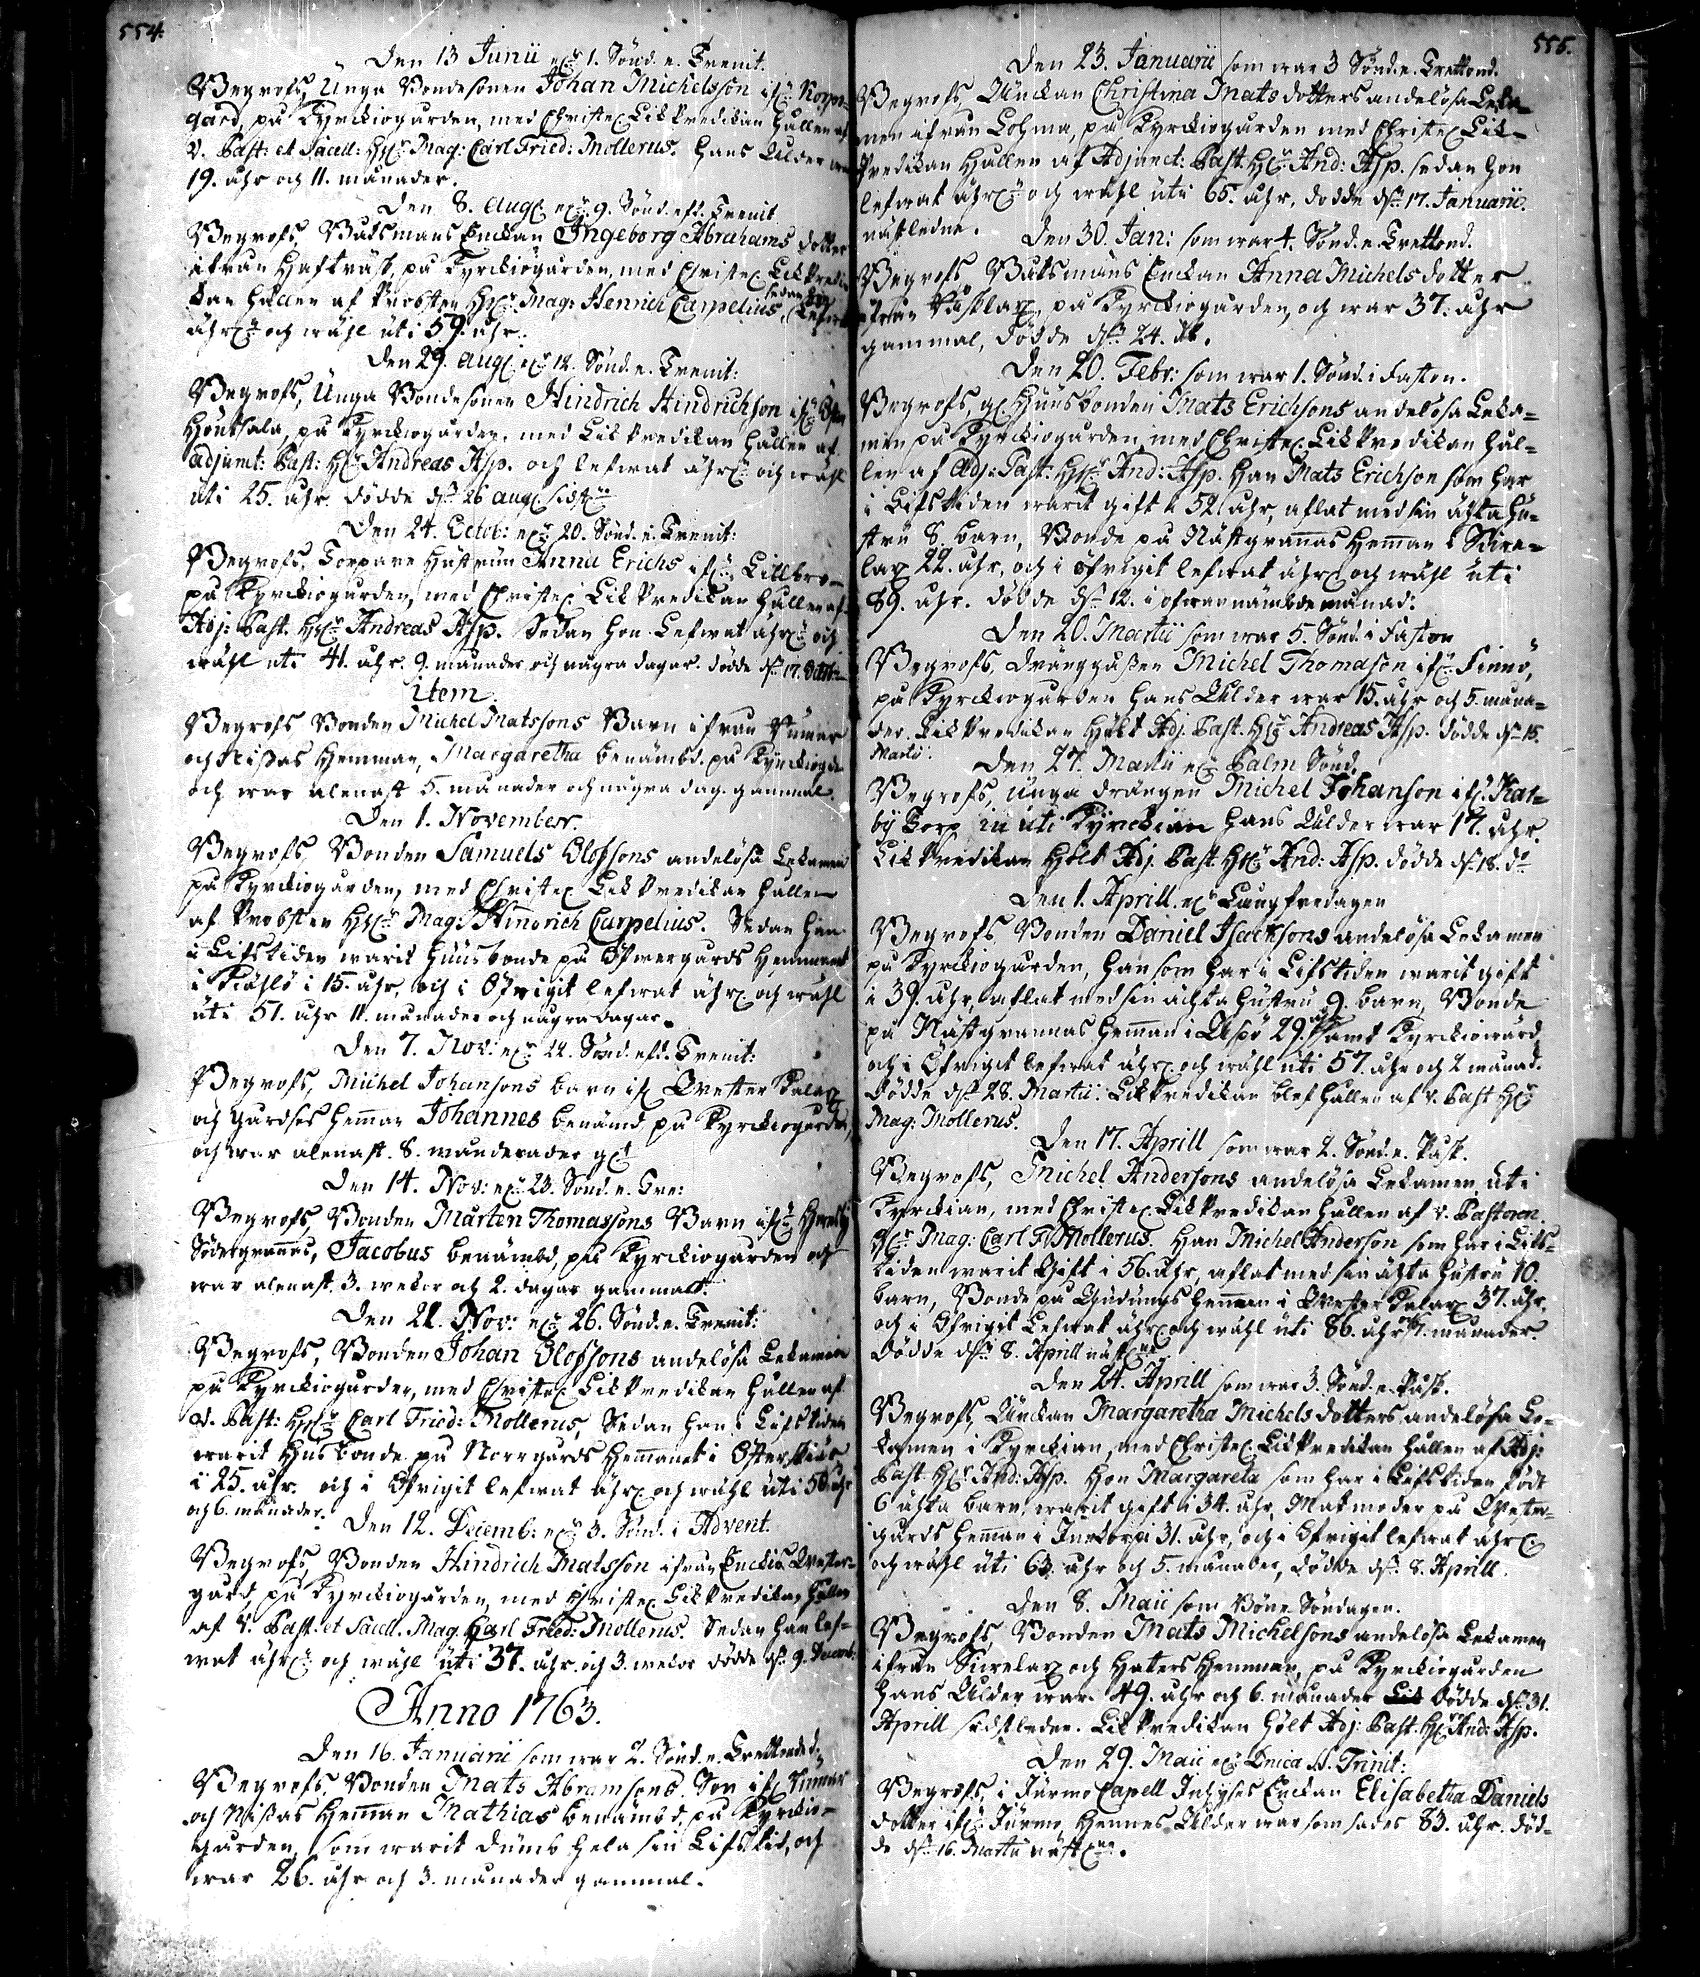 554.
Den 13 Junii e. 1. Sönd. e. Trenit.
Begrofs, Unga Bondesonen Johan Michelsson ifr. Norr-
gård, på Kyrckiogården, med Christel. Lik Predikan hållen af
V. Past: et Sacell: H:r Mag: Carl Fried: Mollerus. hans Ålder war
19. åhr och 11. månader.
Den 8. Aug. 9. Sönd. eft. Trenit
Begrofs, Båtsmans Enckan Ingeborg Abrahams dotter
ifrån Hafträsk, på Kyrckiogården, med Christel. Lik Predi-
kan hållen af Probsten H:r Mag: Henrich Carpelius, sedan hon lefwat
ährl. och wähl uti 59. åhr.
Den 29. Aug. 12. Sönd. e. Trenit:
Begrofs, Unga Bondesonen Hindrich Hindrichson ifr.
Höntsala, på Kyrckiogården, med Lik Predikan hållen af
adjunct: Past: H:r Andreas Asp. och lefwat ährl. och wähl
uti 25. åhr. dödde d. 26 aug. sidst.
Den 24. Octob: 20. Sönd. e. Trenit:
Begrofs, Torpare Hustrun Anna Erichs ifr. Lillbro
på Kyrckiogården, med Christel. Lik Predikan hållen af
Adj: Past. H:r Andreas Asp. Sedan hon Lefwat ährl. och
wähl uti 41. åhr. 9. månader och några dagar. dödde d. 17. Octob:
item.
Begrofs Bonden Michel Matssons Barn ifrån Wimar
och Nissas Hemman, Margaretha benämbd. på Kyrckiogården
och war alenast 5. månader och några dag. gammal.
Den 1. November.
Begrofs, Bonden Samuels Olofsons andelösa Lekamen
på Kyrckiogården, med Christel. Lik Predikan hållen
af Probsten H:r Mag: Hindrich Carpelius. Sedan han
i Lifstiden warit Huusbonde på Öfwergårds Hemmanet
i Kiählö i 15. åhr, och i Öfrigit lefwat ährl. och wähl
uti 51. åhr 11. månader och några dagar.
Den 7. Nov: 22. Sönd. eft. Trenit:
Begrofs, Michel Johansons barn ifr. Wester Kalax
och Gardses Hemman Johannes benämd på Kyrckiogården,
och war alenast. 8. månader g.
Den 14. Nov: 23. Sönd. e. Tre:
Begrofs, Bonden Mårten Thomassons Barn ifr.
Södergrannas, Jacobus benämbd, på Kyrckiogården och
war alenast 3. wekor och 2. dagar gammalt.
Den 21. Nov: 26. Sönd. e. Trenit:
Begrofs, Bonden Johan Olofsons andelösa Lekamen
på Kyrckiogården, med Christel. Lik Predikan hållen af
v. Past: H:r Carl Fried: Mollerus, Sedan han i Lifstiden
warit Husbonde på Norrgårds Hemmanet i Öster
i 25. åhr. och i Öfrigit lefwat ährl. och wähl uti 50 åhr
och 6. månader.
Den 12. Decemb: 3. Sönd. i Advent.
Begrofs, Bonden Hindrich Matsson ifrån Wester-
gård, på Kyrckiogården med Christel. Lik Predikan hållen
af V. Past. et Sacell. Mag. Carl Fried: Mollerus. Sedan han lef-
wat ährl. och wähl uti 37. åhr. och 3. wekor dödde d. 9. Decemb:
Anno 1763.
Den 16. Januarii som war 2. Sönd. e. Trettonded.
Begrofs Bonden Mats Abramsons Son ifr. Wimar
och Nissas Hemman Mathias benämbd på Kyrckio-
gården, som warit dumb hela sin Lifstid, och
war 26. åhr och 3. månader gammal.
555.
Den 23. Januarii som war 3 Sönd. e. Trettond.
Begrofs Änckan Christina Mats dotters andelösa Leka-
men ifrån Lohma, på Kyrckiogården med Christel. Lik-
Predikan Hållen af Adjunct: Past. H:r And: Asp. sedan hon
lefwat ährl. och wähl uti 65. åhr, dödde d. 17. Januarii.
nästledne.
Den 30. Jan: som war 4. Sönd. e. Trettond.
Begrofs Båtsmans Enckan Anna Michelsdotter
ifrån Wisklax, på Kyrckiogården, och war 37. åhr
gammal, dödde d. 24. d.
Den 20. Febr: som war 1. Sönd. i Faston.
Begrofs, gl. Huusbonden Mats Erichsons andelösa Leka-
men på Kyrckiogården, med Christel. Lik Predikan hål-
len af Adj: Past. H:r And: Asp. Han Mats Erichson som har
i Lifstiden warit gift i 52 åhr, aflat med sin ächta hu-
stru 8. barn, Bonde på Nästgrannas Hemman i
lax 22. åhr, och i öfrigit lefwat ährl. och wähl uti
89. åhr. dödde d. 12. i ofwannämbde månad:
Den 20. Martii som war 5. Sönd. i Faston
Begrofs, Dränggåssen Michel Thomason ifr. Finnö,
på Kyrckiogården hans Ålder war 15. åhr och 5. måna-
der. Lik Predikan Hölt Adj. Past. H:r Andreas Asp. dödde d. 15.
Martii.
Den 27. Martii Palm Sönd.
Begrofs, unga drängen Michel Johanson ifr. Kat-
by Torp in uti Kyrckian hans Ålder war 17. åhr.
Lik Predikan Hölt Adj. Past. H:r And: Asp. dödde d. 18. d:o
Den 1. Aprill. Långfredagen
Begrofs, Bonden Daniel Isacksons andelösa Lekamen
på Kyrckiogården, han som har i Lifstiden warit gift
i 39. åhr, aflat med sin ächta Hustru 9. barn, Bonde
på Nästgrannas Hemman i Äspö 29. åhr samt Kyrckiowärd
och i Öfrigit lefwat ährl. och wähl uti 57. åhr och 2 månad.
dödde d. 28. Martii. Lik Predikan blef hållen af v. Past H:r
Mag: Mollerus.
Den 17. Aprill som war 2. Sönd. e. Påsk.
Begrofs, Michel Andersons andelösa Lekamen uti
Kyrckian, med Christel. Lik Predikan hållen af v. Pastoren
H:r Mag: Carl F. Mollerus. Han Michel Anderson som har i Lifs-
tiden warit Gift i 56. åhr, aflat med sin ächta hustru 10.
barn, Bonde på Gudunas hemman i Wester Kalax 37. åhr,
och i Öfrigit Lefwat ährl. och wähl uti 86. åhr 7. månader.
dödde d. 8. Aprill näst.
Den 24. Aprill som war 3. Sönd. e. Påsk.
Begrofs, Änckan Margaretha Michels dotters andelösa Le-
kamen i Kyrckian, med Christel. Lik Predikan hållen af Adj:
Past: H:r And: Asp. Hon Margareta som har i Lifstiden födt
6 ächta barn, warit gift i 34. åhr, Matmoder på Wester-
gårds Hemman i 31. åhr, och i Öfrigit lefwat ährl.
och wähl uti 63. åhr och 5. månader, dödde d. 8. Aprill.
Den 8. Maii som Böne Söndagen.
Begrofs, Bonden Mats Michelsons andelösa Lekamen
ifrån och Haters Hemman, på Kyrckiogården
hans Ålder war 49. åhr och 6. månader dödde d. 31.
Aprill sidstleden. Lik Predikan hölt Adj: Past. H:r And: Asp.
Den 29. Maii Dnica SS. Trinit:
Begrofs, i Jurmo Capell Inhyses Enckan Elisabetha Daniels
dotter ifr. Jurmo, Hennes Ålder war som sades 83. åhr. död-
de d. 16. Martii näst.